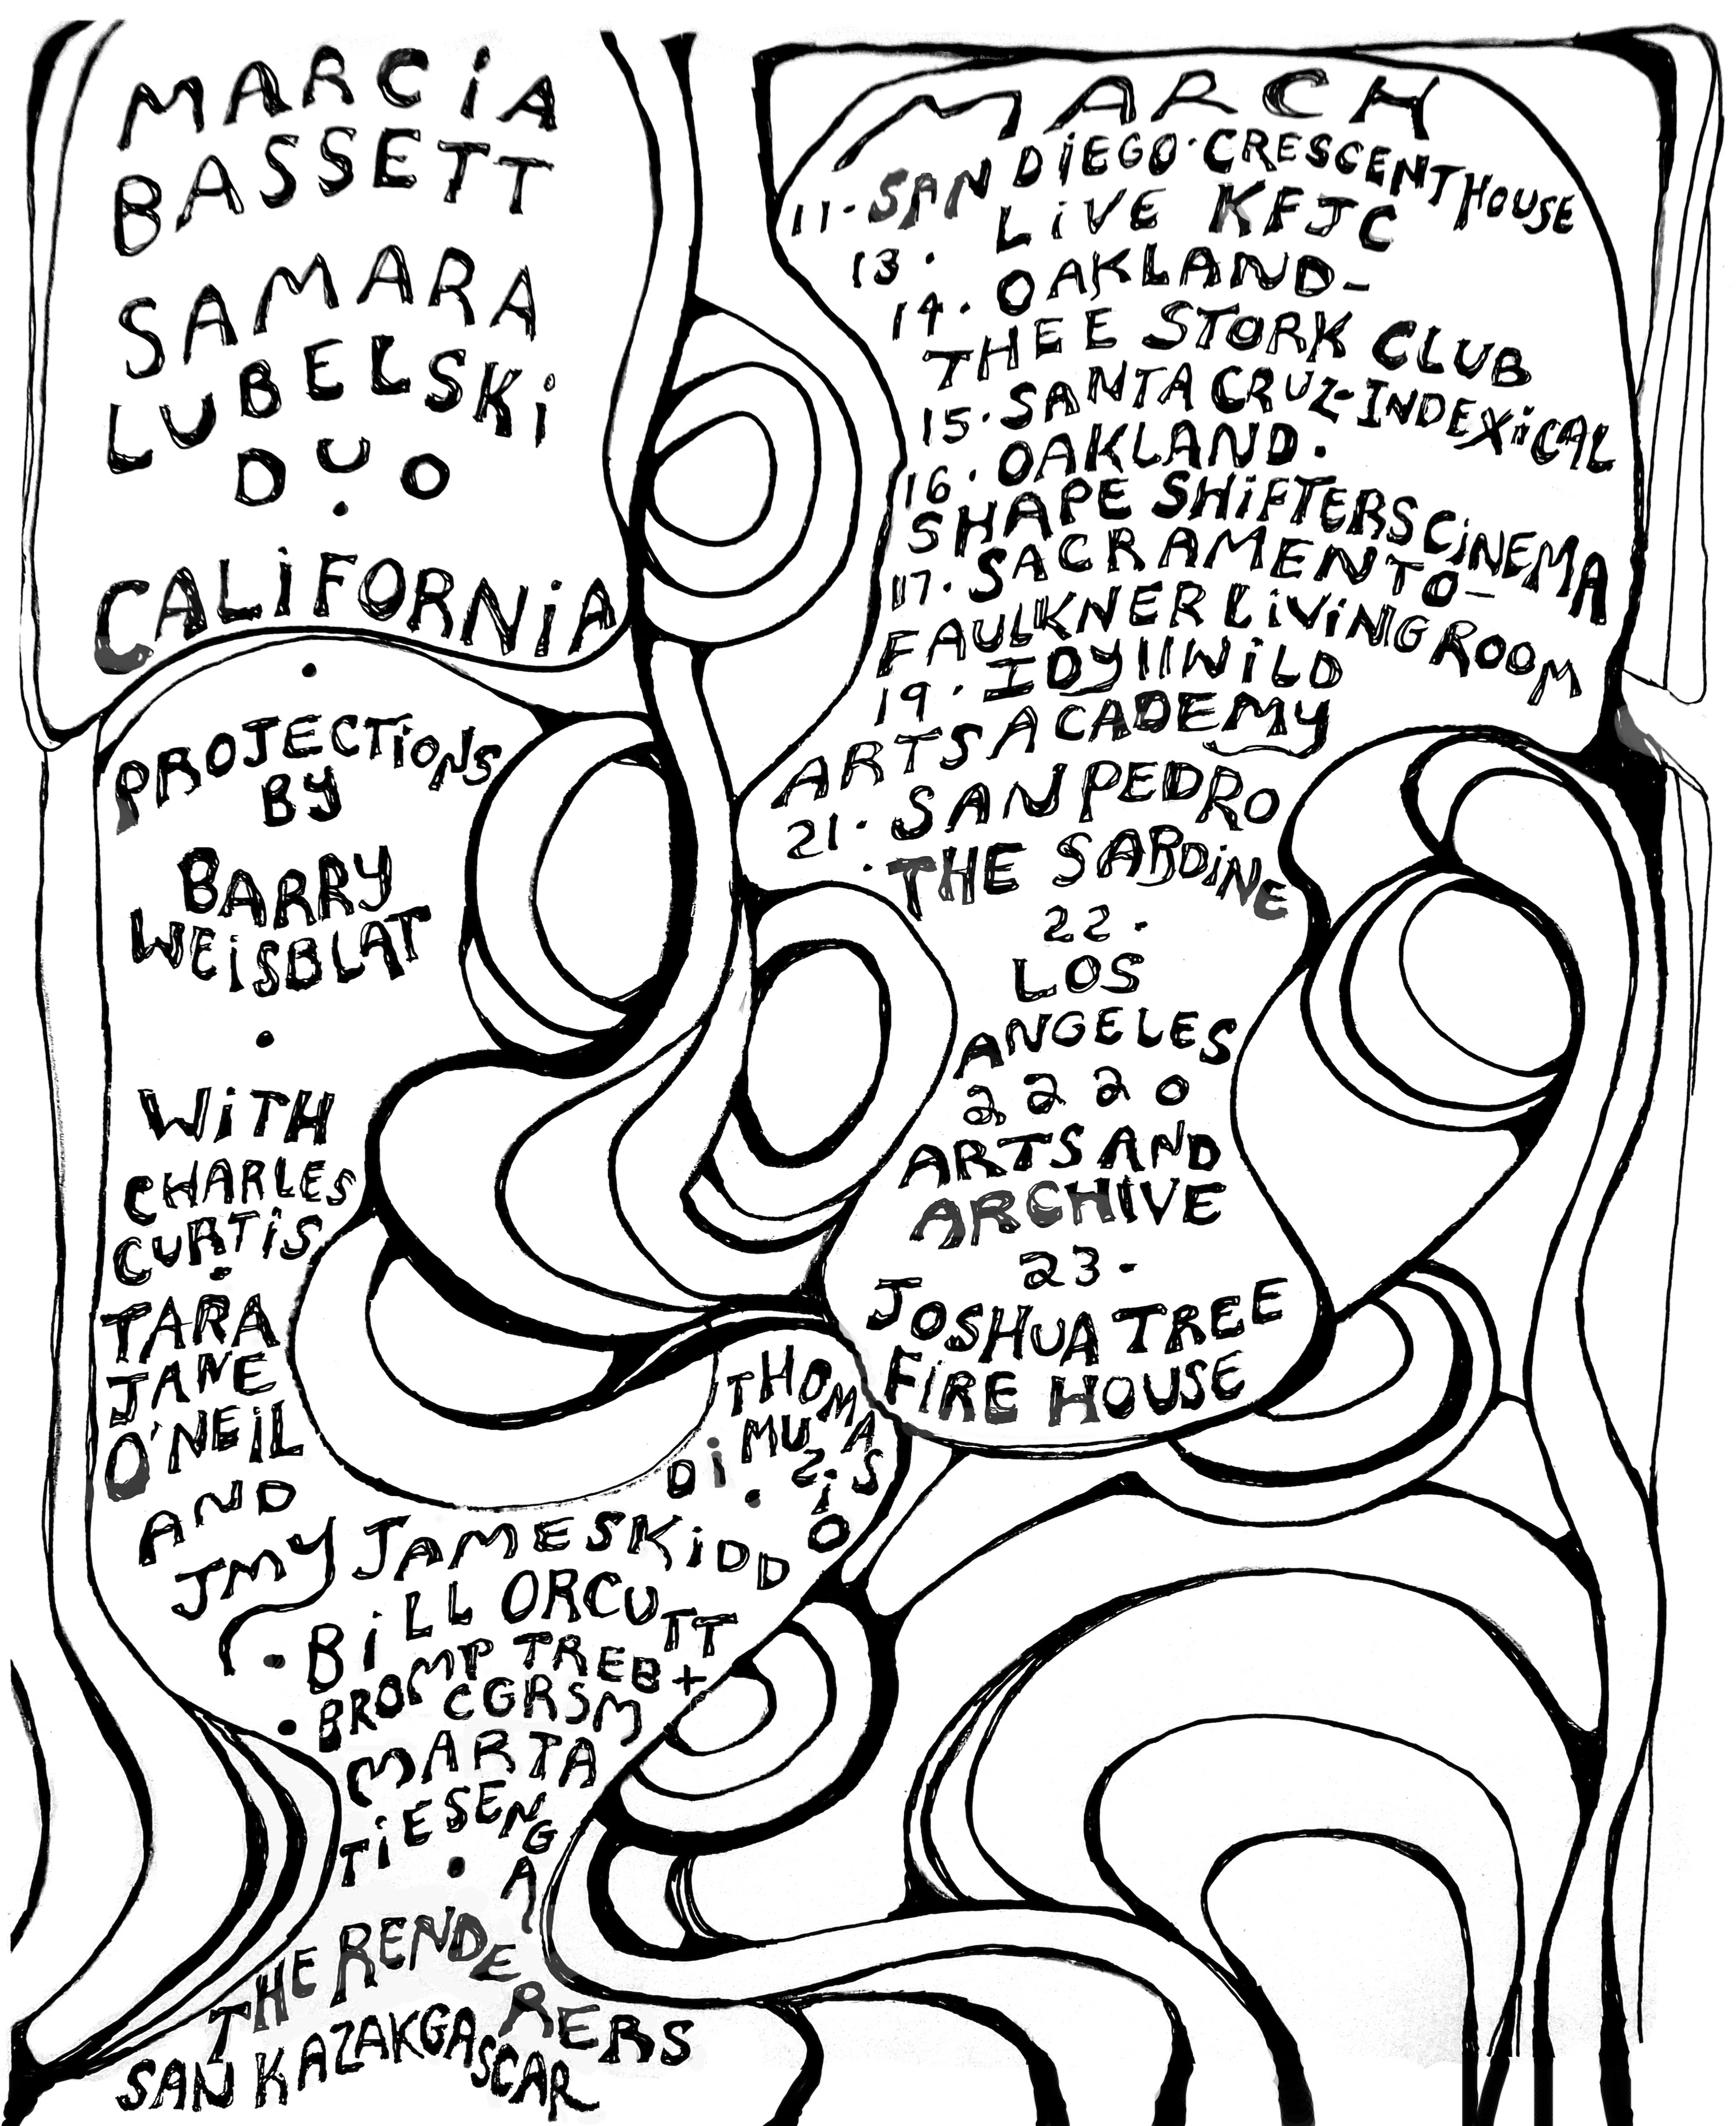 MARCiA
BASSETT
SAMARA
LUBELSKi
DUO
•
CALiFORNiA
•
PROJECTiONS
BY
BARRY
WEiSBLAT
•
WiTH
CHARLES
CURTiS
•
TARA
JANE
O'NEiL
AND
JMY JAMES KiDD
THOMAS
Di MUZiO
•
• BiLL ORCUTT
BROMP TREB +
• CGRSM
MARTA
TiESENGA
•
THE RENDERERS
SAN KAZAKGASCAR
MARCH
11· SAN DiEGO· CRESCENT HOUSE
13· LiVE KFJC
14· OAKLAND-
THEE STORK CLUB
15· SANTA CRUZ- INDEXiCAL
16· OAKLAND·
SHAPE SHiFTERS CiNEMA
17· SACRAMENTO-
FAULKNER LiViNG ROOM
19· IDyllWiLD
ARTS ACADEMY
21· SAN PEDRO
· THE SARDiNE
22·
LOS
ANGELES
2220
ARTS AND
ARCHIVE
23-
JOSHUA TREE
FiRE HOUSE